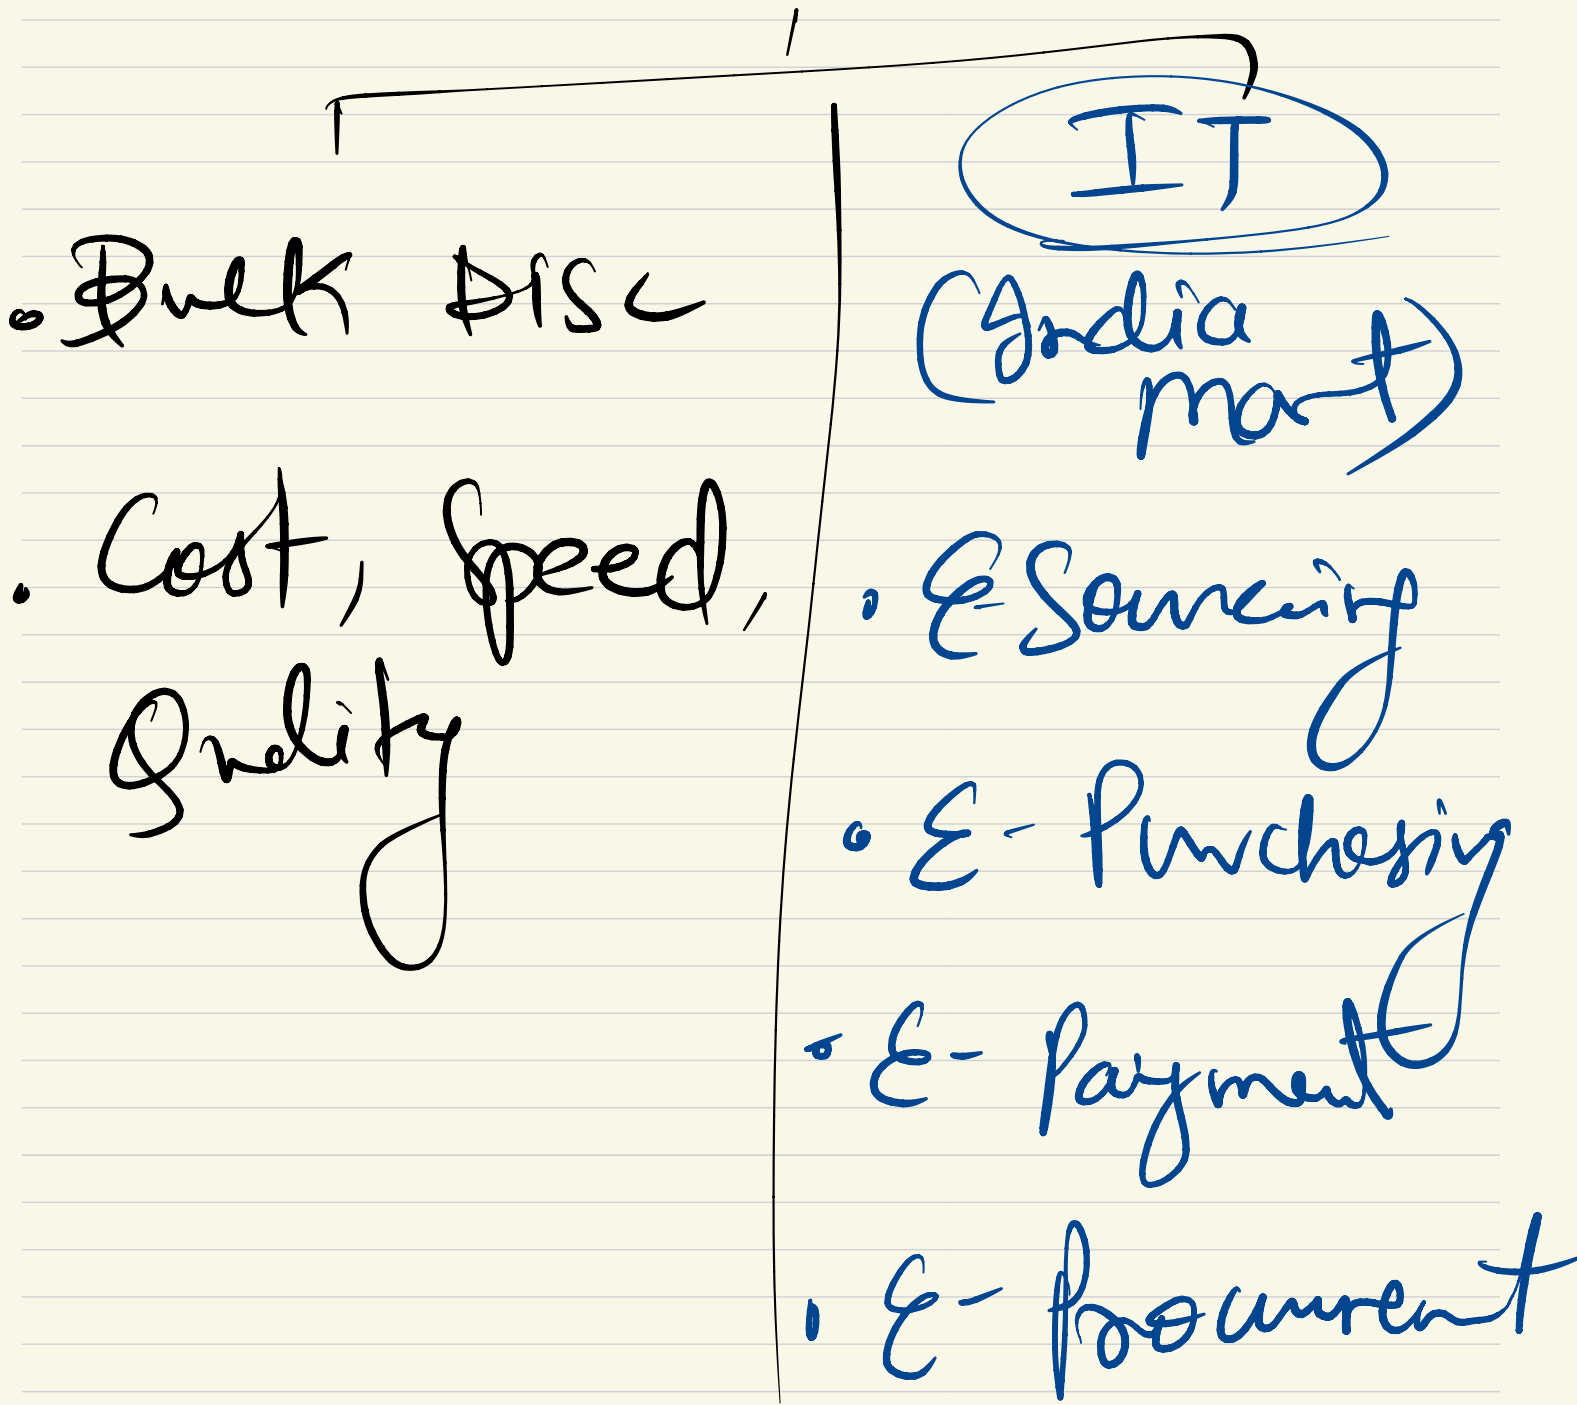 • Bulk DISC
• Cost, Speed,
Quality
IT
(India
mart)
• E-Sourcing
• E-Purchasing
• E-Payment
• E-Procurement